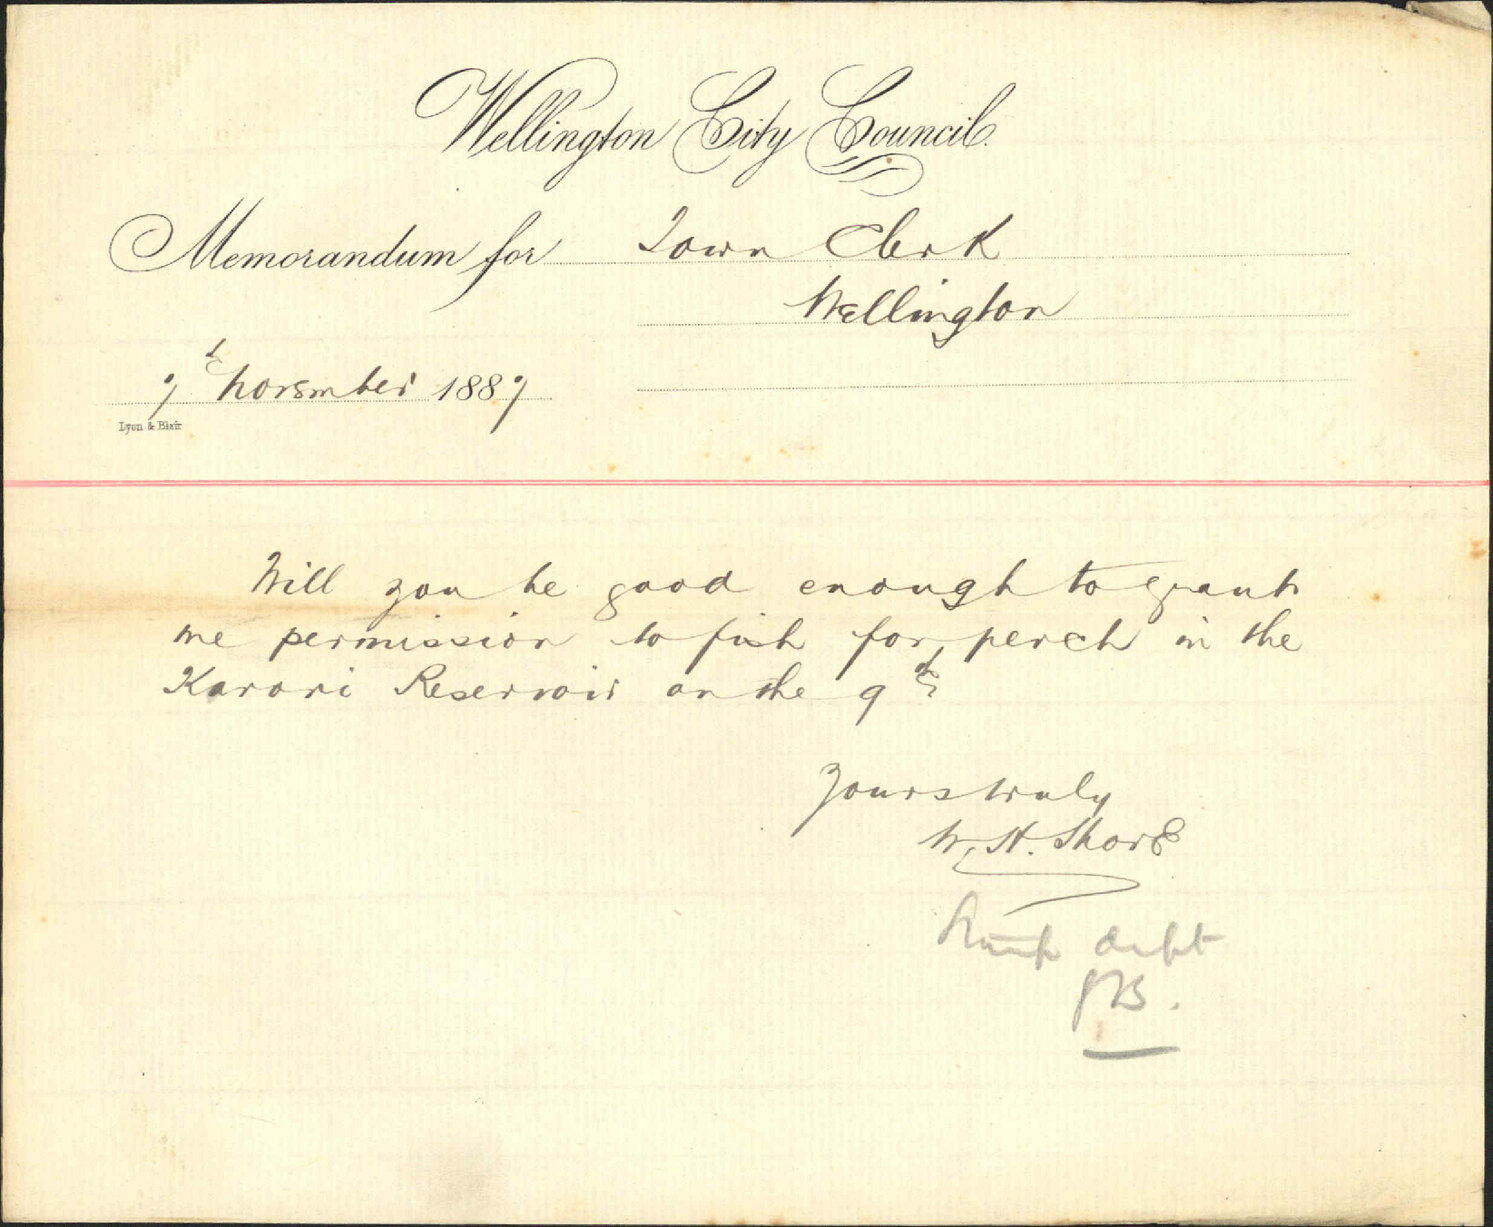 Wellington City Council.
Memorandum for Town Clerk
Wellington
7th November 1887
Lyon & Blair
Will you be good enough to grant
me permission to fish for perch in the
Karori Reservoir on the 9th
Yours truly
W. H. Shore